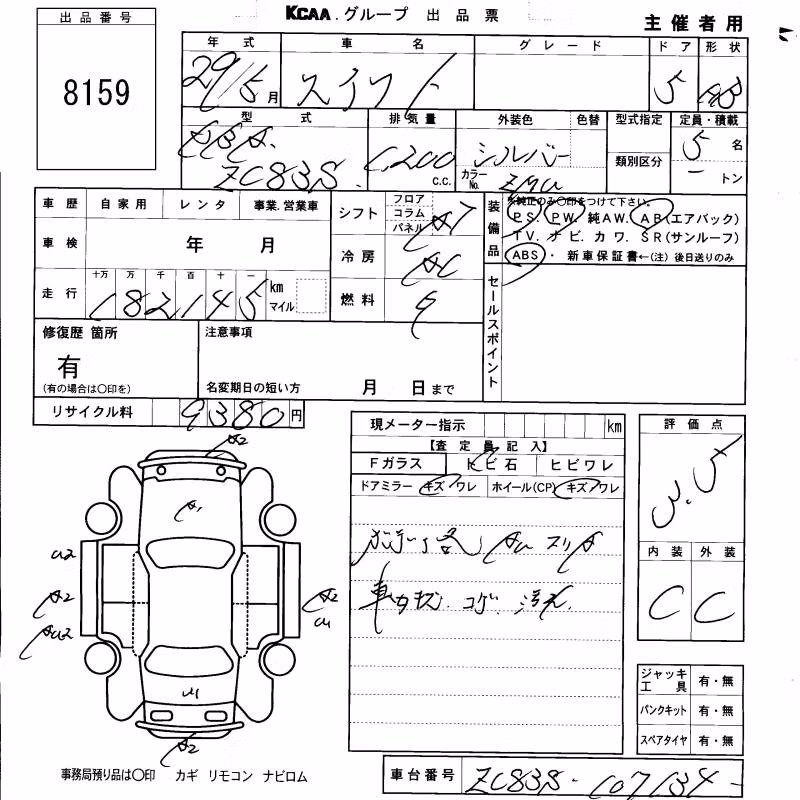 KCAA.グループ 出品票
主催者用
出品番号
8159
年式 車名 グレード ドア 形状
29/5月 スイフト 5 HB
型式 排気量 外装色 色替 型式指定 定員・積載
DBA- 1,200 c.c. シルバー 5名
ZC83S カラーNo. 類別区分 トン
車歴 自家用 レンタ 事業.営業車
シフト フロア コラム パネル AT
装備品 ※純正のみ○印をつけて下さい。
P.S. P.W. 純A.W. A.B(エアバック)
T.V. ナビ. カワ. S.R(サンルーフ)
ABS・ 新車保証書←(注)後日送りのみ
車検 年 月
冷房 AC
十万 万 千 百 十 一
走行 182145 km マイル
燃料
セールスポイント
修復歴 箇所
有
(有の場合は○印を)
注意事項
名変期日の短い方 月 日まで
リサイクル料 9380円
現メーター指示 km
【査定員記入】
Fガラス トビ石 ヒビワレ
ドアミラー キズ/ワレ ホイール(CP) キズ/ワレ
車内 コゲ. 汚れ.
評価点
3.5
内装 外装
C C
A2
A1
U2
A2
AU2
A2
U1
U1
A2
ジャッキ工具 有・無
パンクキット 有・無
スペアタイヤ 有・無
事務局預り品は○印 カギ リモコン ナビロム
車台番号 ZC83S-107134-